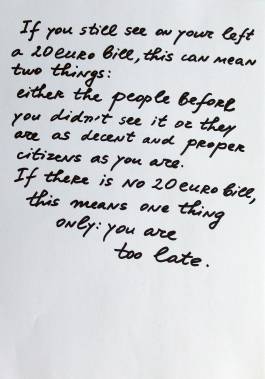 If you still see on your left
a 20 euro bill, this can mean
two things:
either the people before
you didn't see it or they
are as decent and proper
citizens as you are.
If there is no 20 euro bill,
this means one thing
only: you are
too late.